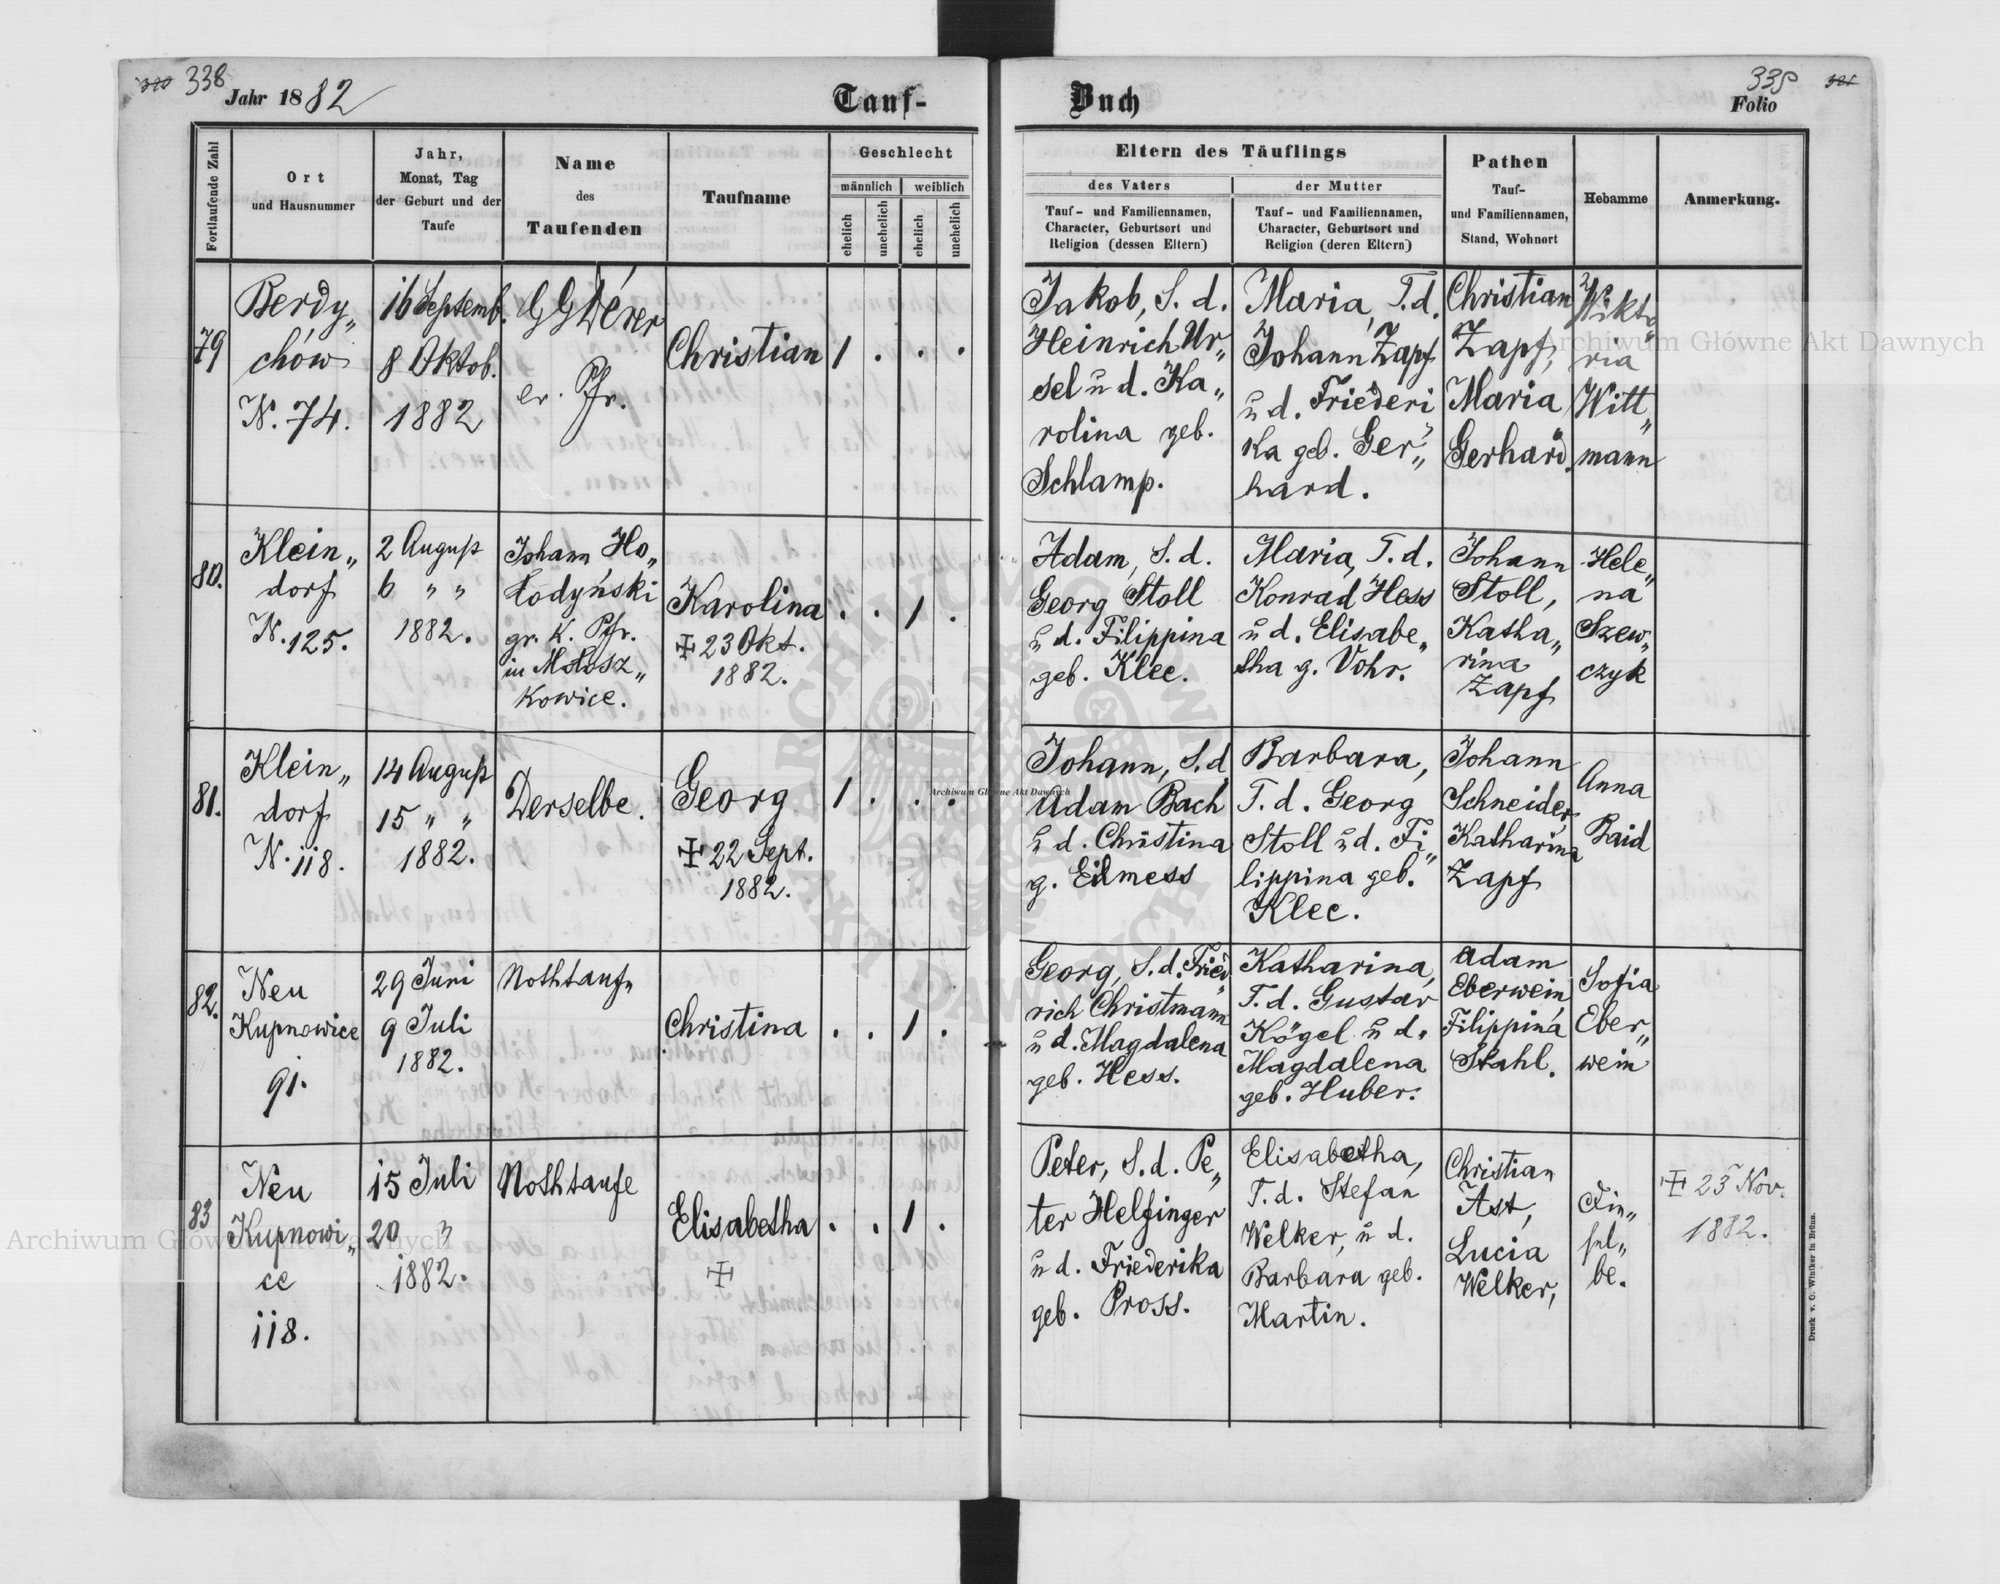 338
Jahr 1882
Tauf-
Fortlaufende Zahl
Ort
und Hausnummer
Jahr,
Monat, Tag
der Geburt und der
Taufe
Name
des
Taufenden
Taufname
Geschlecht
männlich
weiblich
ehelich
unehelich
ehelich
unehelich
79
Berdy„
chów
N. 74.
16 Septemb.
8 Oktob.
1882
ev. Pfr.
Christian
1 . . .
80.
Klein„
dorf
N. 125.
2 August
6 „ „
1882.
Johann Ho„
łodyński
gr. k. Pfr.
in Mołosz„
kowice.
Karolina
23 Okt.
1882.
. . 1 .
81.
Klein„
dorf
N. 118.
14 August
15 „ „
1882.
Derselbe.
Georg
22 Sept.
1882.
1 . . .
82.
Neu
Kupnowice
91.
29 Juni
9 Juli
1882.
Nothtauf„
Christina
. . 1 .
83
Neu
Kupnowi„
ce
118.
15 Juli
20 3
1882.
Nothtaufe
Elisabetha
. . 1 .
Buch
Folio
Eltern des Täuflings
des Vaters
der Mutter
Tauf- und Familiennamen,
Character, Geburtsort und
Religion (dessen Eltern)
Tauf- und Familiennamen,
Character, Geburtsort und
Religion (deren Eltern)
Pathen
Tauf-
und Familiennamen,
Stand, Wohnort
Hebamme
Anmerkung.
Jakob, S. d.
Heinrich Ur„
sel u d. Ka„
rolina geb.
Schlamp.
Maria, T. d.
Johann Zapf
u d. Friederi
ka geb. Ger„
hard.
Christian
Zapf,
Maria
Gerhard.
Wikto
ria
Witt„
mann
Adam, S. d.
Georg Stoll
u d. Filippina
geb. Klee.
Maria, T. d.
Konrad Hess
u d. Elisabe„
tha g. Vohr.
Johann
Stoll,
Katha„
rina
Zapf
Hele„
na
Szew„
czyk
Johann, S. d
Adam Bach
u d. Christina
g. Eilmess
Barbara,
T. d. Georg
Stoll u d. Fi„
lippina geb.
Klee.
Johann
Schneider,
Katharina
Zapf
Anna
Baid
Georg, S. d. Fried„
rich Christmann
u d. Magdalena
geb. Hess.
Katharina,
T. d. Gustav
Kögel u d.
Magdalena
geb. Huber.
Adam
Eberwein,
Filippina
Stahl.
Sofia
Eber„
wein
Peter, S. d. Pe„
ter Helfinger
u d. Friederika
geb. Pross.
Elisabetha,
T. d. Stefan
Welker, u d.
Barbara geb.
Martin.
Christian
Ast,
Lucia
Welker,
Die„
sel„
be.
23 Nov.
1882.
Druck v. C. Winiker in Brünn.
Archiwum Główne Akt Dawnych
Archiwum Główne Akt Dawnych
Archiwum Główne Akt Dawnych
ARCHIWUM GŁÓWNE AKT DAWNYCH